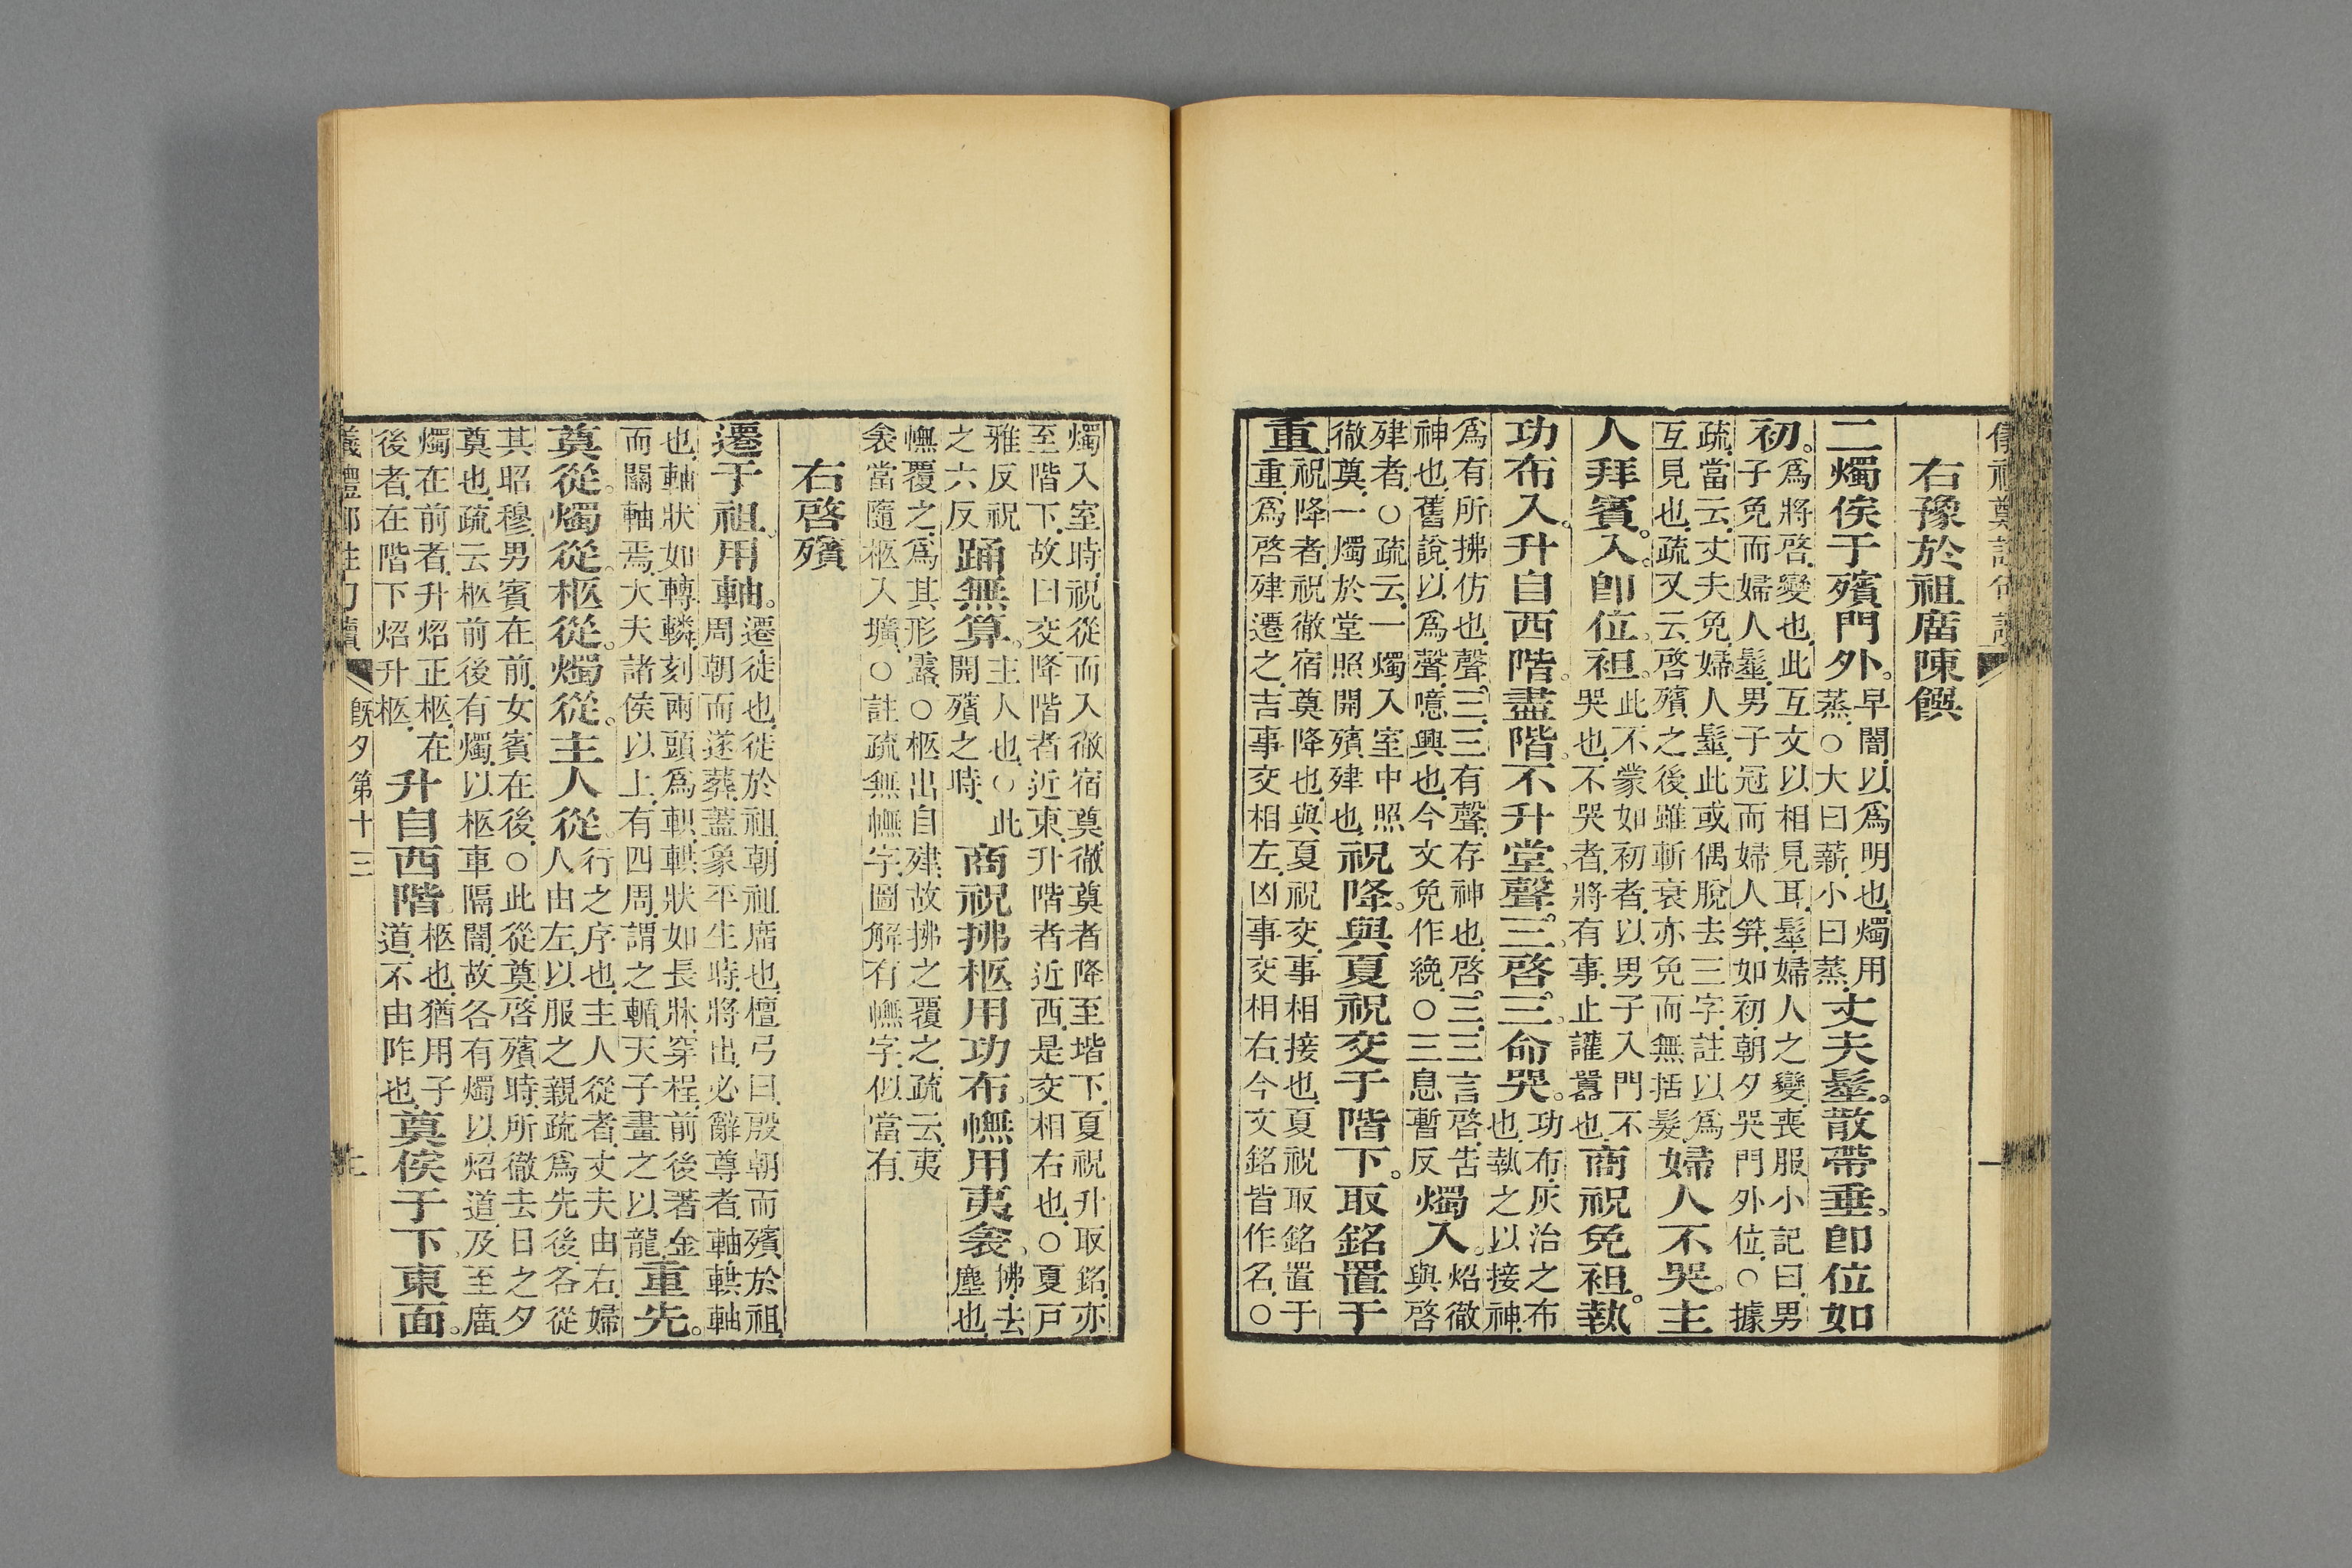 右豫於祖廟陳饌
二燭俟于殯門外。早闇以爲明也燭用蒸○大曰薪小曰蒸丈夫髽。散帶垂。即位如
初。爲將啓變也此互文以相見耳髽婦人之變喪服小記曰男子免而婦人髽男子冠而婦人笄如初朝夕哭門外位○據
疏當云丈夫免婦人髽此或偶脫去三字註以爲互見也疏又云啓殯之後雖斬衰亦免而無括髮婦人不哭。主
人拜賓。入。即位。袒。此不蒙如初者以男子入門不哭也不哭者將有事止讙囂也商祝免袒。執
功布入。升自西階。盡階不升堂。聲三。啓三。命哭。功布灰治之布也執之以接神
爲有所拂仿也聲三三有聲存神也啓三三言啓告神也舊說以爲聲噫興也今文免作絻○三息暫反燭入。炤徹與啓
肂者○疏云一燭入室中照徹奠一燭於堂照開殯肂也祝降。與夏祝交于階下。取銘置于
重。祝降者祝徹宿奠降也與夏祝交事相接也夏祝取銘置于重爲啓肂遷之吉事交相左凶事交相右今文銘皆作名○
燭入室時祝從而入徹宿奠徹奠者降至堦下夏祝升取銘亦至階下故曰交降階者近東升階者近西是交相右也○夏戶
雅反祝之六反踊無算。主人也○此開殯之時商祝拂柩用功布。幠用夷衾。拂去塵也
幠覆之爲其形露○柩出自肂故拂之覆之疏云夷衾當隨柩入壙○註疏無幠字圖解有幠字似當有
右啓殯
遷于祖。用軸。遷徙也徙於祖朝祖廟也檀弓曰殷朝而殯於祖周朝而遂葬蓋象平生時將出必辭尊者軸輁軸
也軸狀如轉轔刻兩頭爲軹輁狀如長牀穿桯前後著金而關軸焉大夫諸侯以上有四周謂之輴天子畫之以龍重先。
奠從。燭從。柩從。燭從。主人從。行之序也主人從者丈夫由右婦人由左以服之親疏爲先後各從
其昭穆男賓在前女賓在後○此從奠啓殯時所徹去日之夕奠也疏云柩前後有燭以柩車隔闇故各有燭以炤道及至廟
燭在前者升炤正柩在後者在階下炤升柩升自西階。柩也猶用子道不由阼也奠俟于下。東面。
既夕第十三